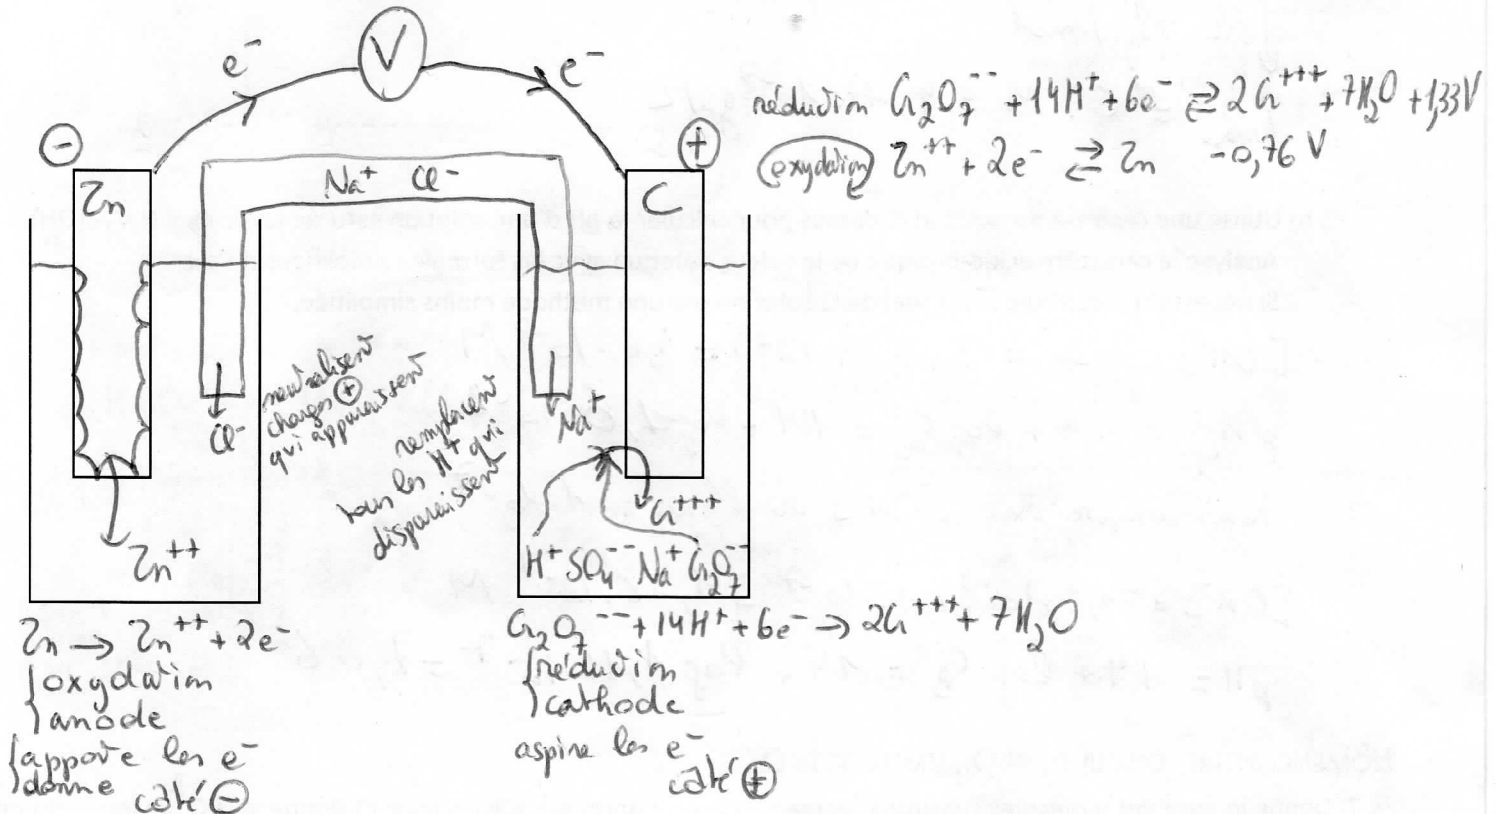 e⁻ V e⁻
réduction Cr₂O₇⁻⁻ + 14H⁺ + 6e⁻ ⇄ 2Cr⁺⁺⁺ + 7H₂O +1,33V
oxydation Zn⁺⁺ + 2e⁻ ⇄ Zn -0,76 V
- +
Zn Na⁺ Cl⁻ C
neutralisent
charges +
qui apparaissent
Cl⁻
remplacent
tous les H⁺ qui
disparaissent
Na⁺
Cr⁺⁺⁺
Zn⁺⁺
H⁺ SO₄⁻⁻ Na⁺ Cr₂O₇⁻⁻
Zn → Zn⁺⁺ + 2e⁻
oxydation
anode
apporte les e⁻
donne
côté -
Cr₂O₇⁻⁻ + 14H⁺ + 6e⁻ → 2Cr⁺⁺⁺ + 7H₂O
réduction
cathode
aspire les e⁻
côté +